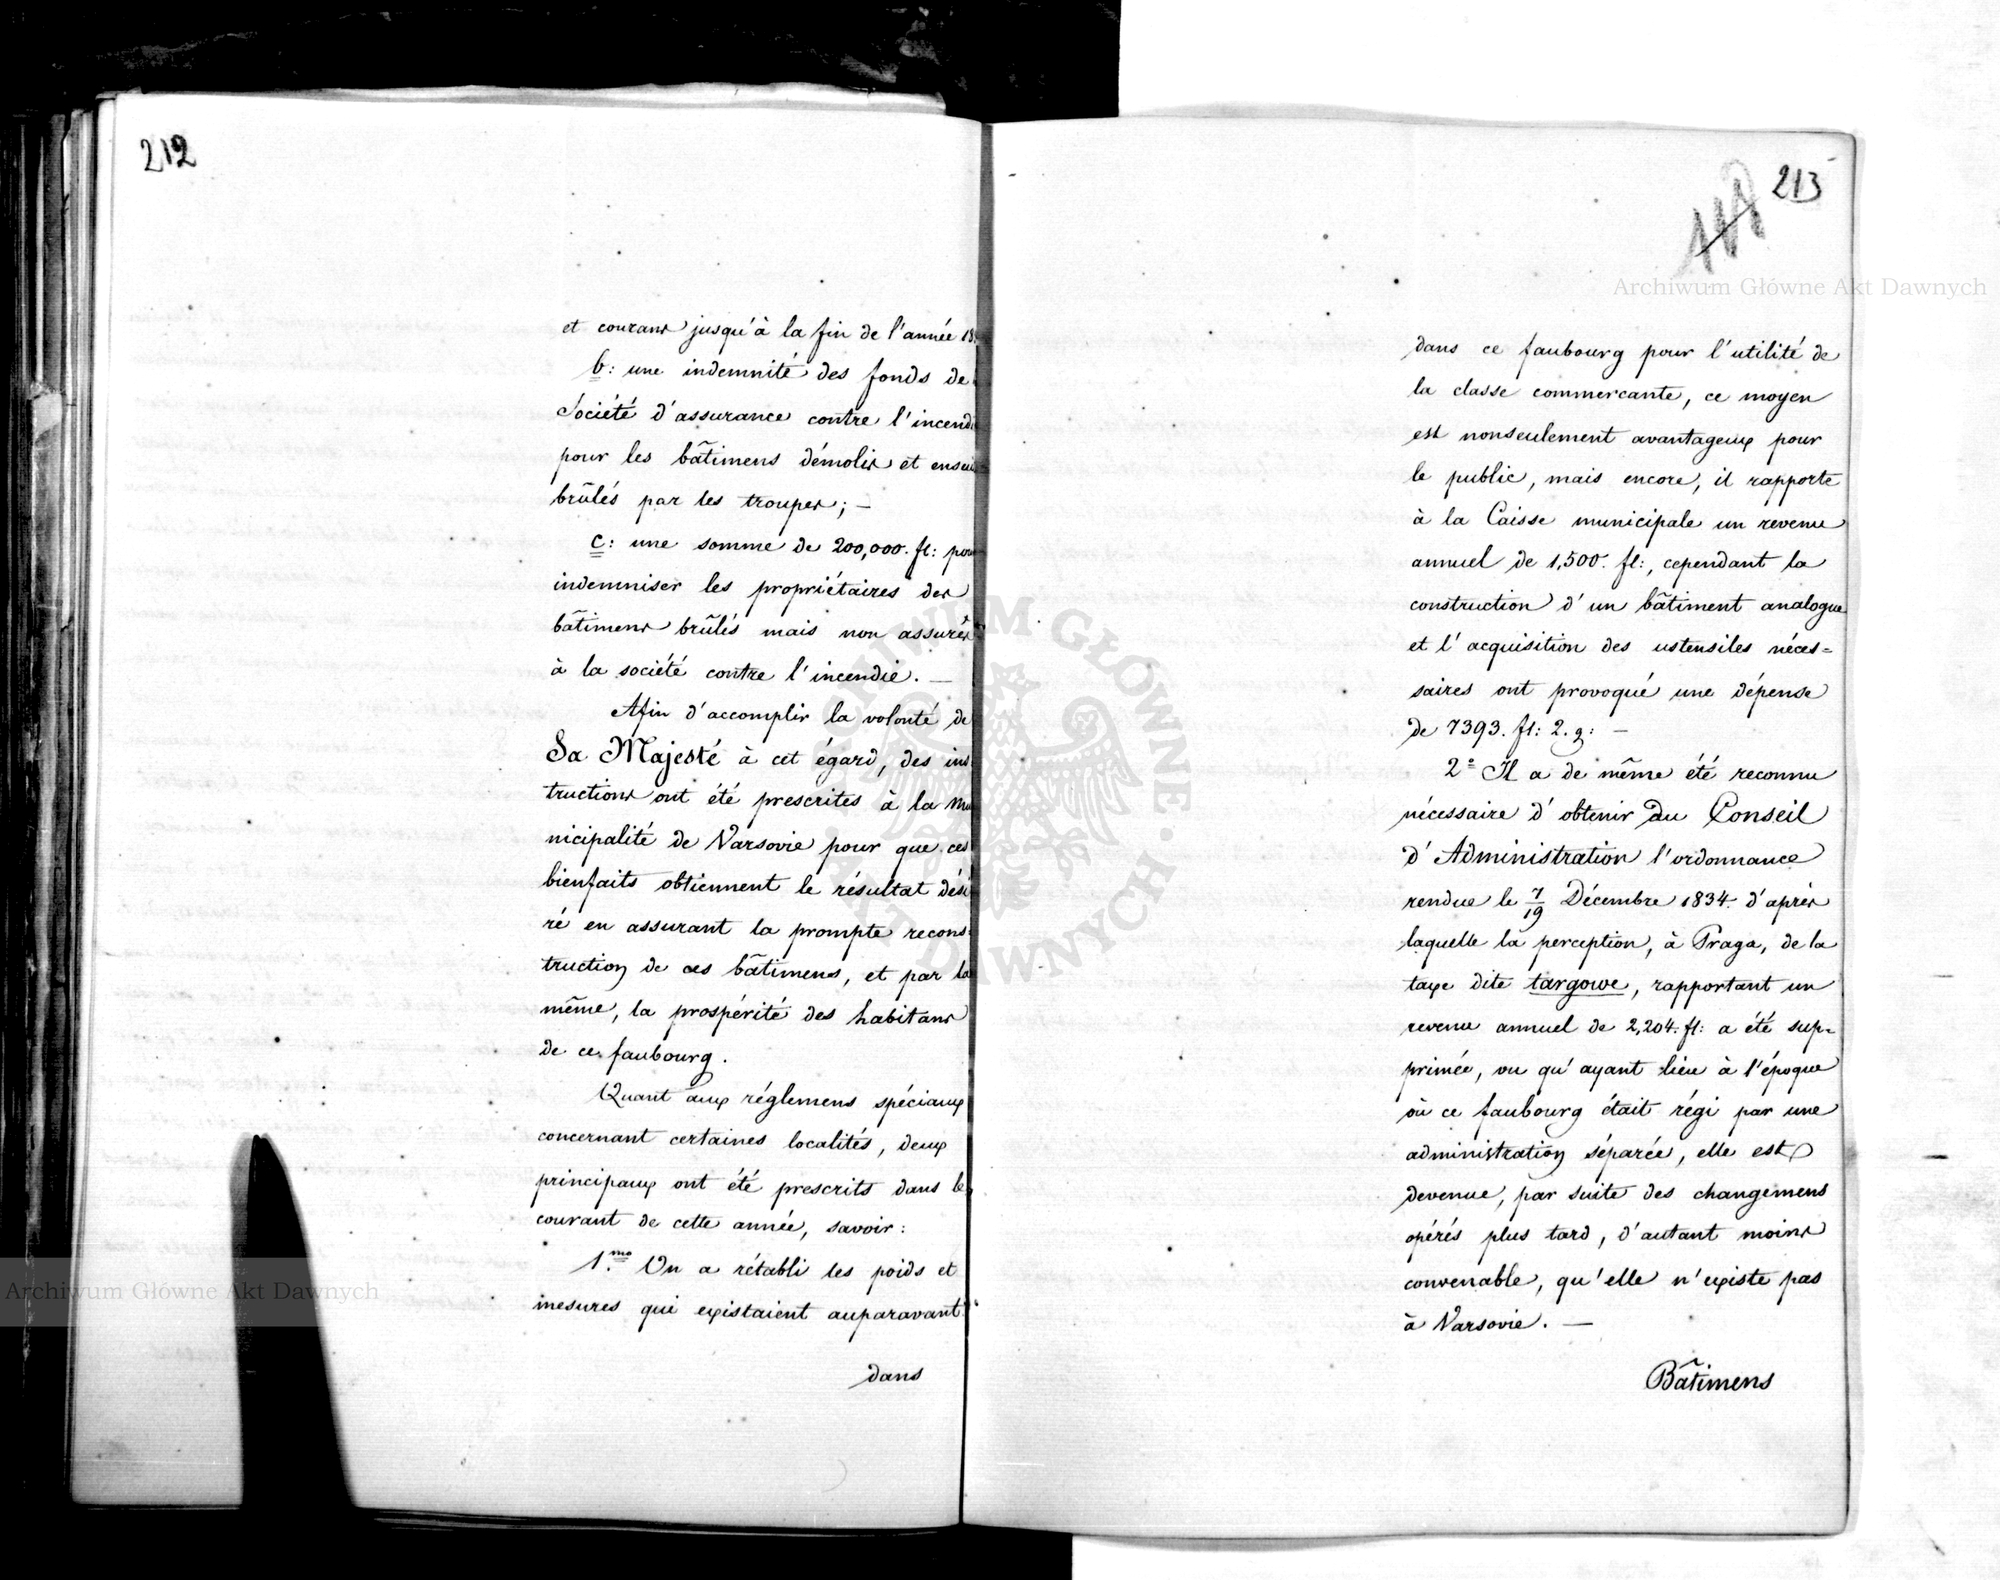 212
et courans jusqu'à la fin de l'année 18
b: une indemnité des fonds de
Société d'assurance contre l'incend
pour les bâtimens démolis et ensui
brûlés par les troupes; —
c: une somme de 200,000. fl: pour
indemniser les propriétaires des
bâtimens brûlés mais non assurés
à la société contre l'incendie. —
Afin d'accomplir la volonté de
Sa Majesté à cet égard, des ins
tructions ont été prescrites à la mu
nicipalité de Varsovie pour que ces
bienfaits obtiennent le résultat dési
ré en assurant la prompte recons
truction de ces bâtimens, et par la
même, la prospérité des habitans
de ce faubourg.
Quant aux réglemens spéciaux
concernant certaines localités, deux
principaux ont été prescrits dans le
courant de cette année, savoir:
1.mo On a rétabli les poids et
mesures qui existaient auparavant
dans
213
dans ce faubourg pour l'utilité de
la classe commercante, ce moyen
est nonseulement avantageux pour
le public, mais encore, il rapporte
à la Caisse municipale un revenu
annuel de 1,500. fl:, cependant la
construction d'un bâtiment analogue
et l'acquisition des ustensiles néces=
saires ont provoqué une dépense
de 7393. fl: 2. g: —
2° Il a de même été reconnu
nécessaire d'obtenir du Conseil
d'Administration l'ordonnance
rendue le 7/19 Décembre 1834. d'après
laquelle la perception, à Praga, de la
taxe dite targowe, rapportant un
revenu annuel de 2,204. fl: a été sup=
primée, vu qu'ayant lieu à l'époque
où ce faubourg était régi par une
administration séparée, elle est
devenue, par suite des changemens
opérés plus tard, d'autant moins
convenable, qu'elle n'existe pas
à Varsovie. —
Bâtimens
Archiwum Główne Akt Dawnych
Archiwum Główne Akt Dawnych
ARCHIWUM GŁÓWNE AKT DAWNYCH